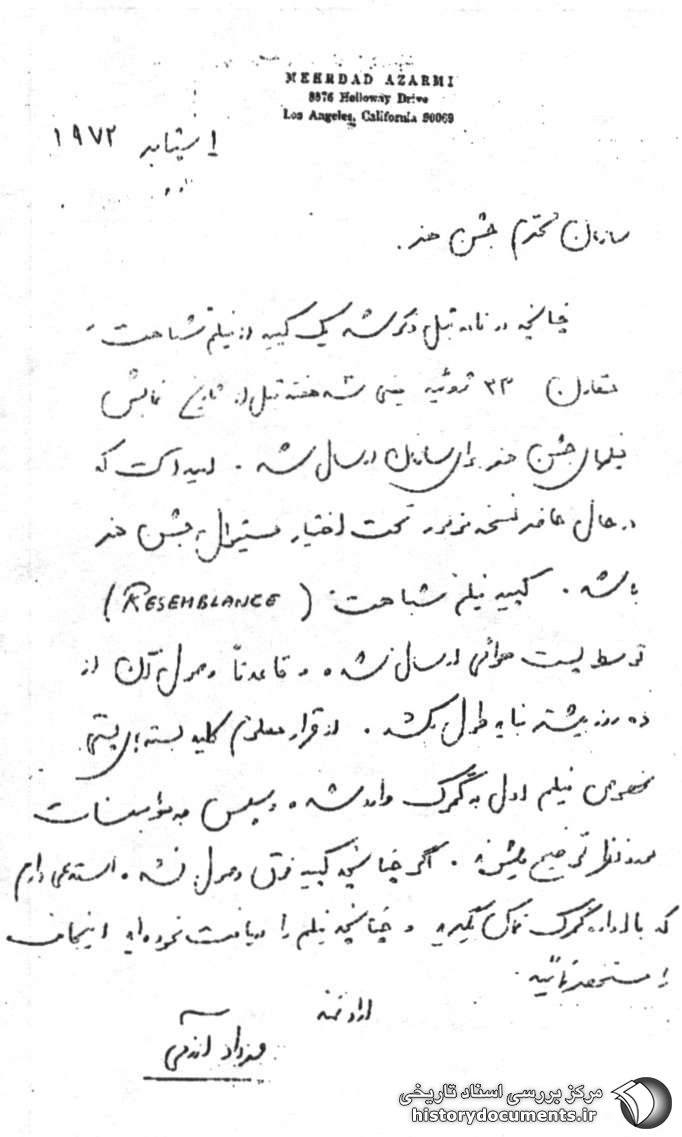 MEHRDAD AZARMI
8876 Holloway Drive
Los Angeles, California 90069
۱ سپتامبر ۱۹۷۲
سازمان محترم جشن هنر.
چنانچه در نامه قبل ذکر شد یک کپیه از فیلم شباهت
متقارن ۲۳ ژوئیه یعنی سه هفته قبل از تاریخ نمایش
فیلمهای جشن هنر برای سازمان ارسال شد. امید است که
در حال حاضر نسخه مزبور تحت اختیار فستیوال جشن هنر
باشد. کپیه فیلم شباهت (RESEMBLANCE)
توسط پست هوائی ارسال شده و قاعدتاً وصول آن از
ده روز بیشتر نباید طول بکشد. از قرار معلوم کلیه بسته‌های پستی
مخصوص فیلم اول به گمرک وارد شده و سپس به مؤسسات
مورد نظر توضیح میشود. اگر چنانچه کپیه فوق وصول نشده استدعا دارم
که با اداره گمرک تماس بگیرید و چنانچه فیلم را دریافت نموده‌اید اینجانب
را مستحضر نمائید.
ارادتمند
مهرداد آذرمی
مرکز بررسی اسناد تاریخی
historydocuments.ir